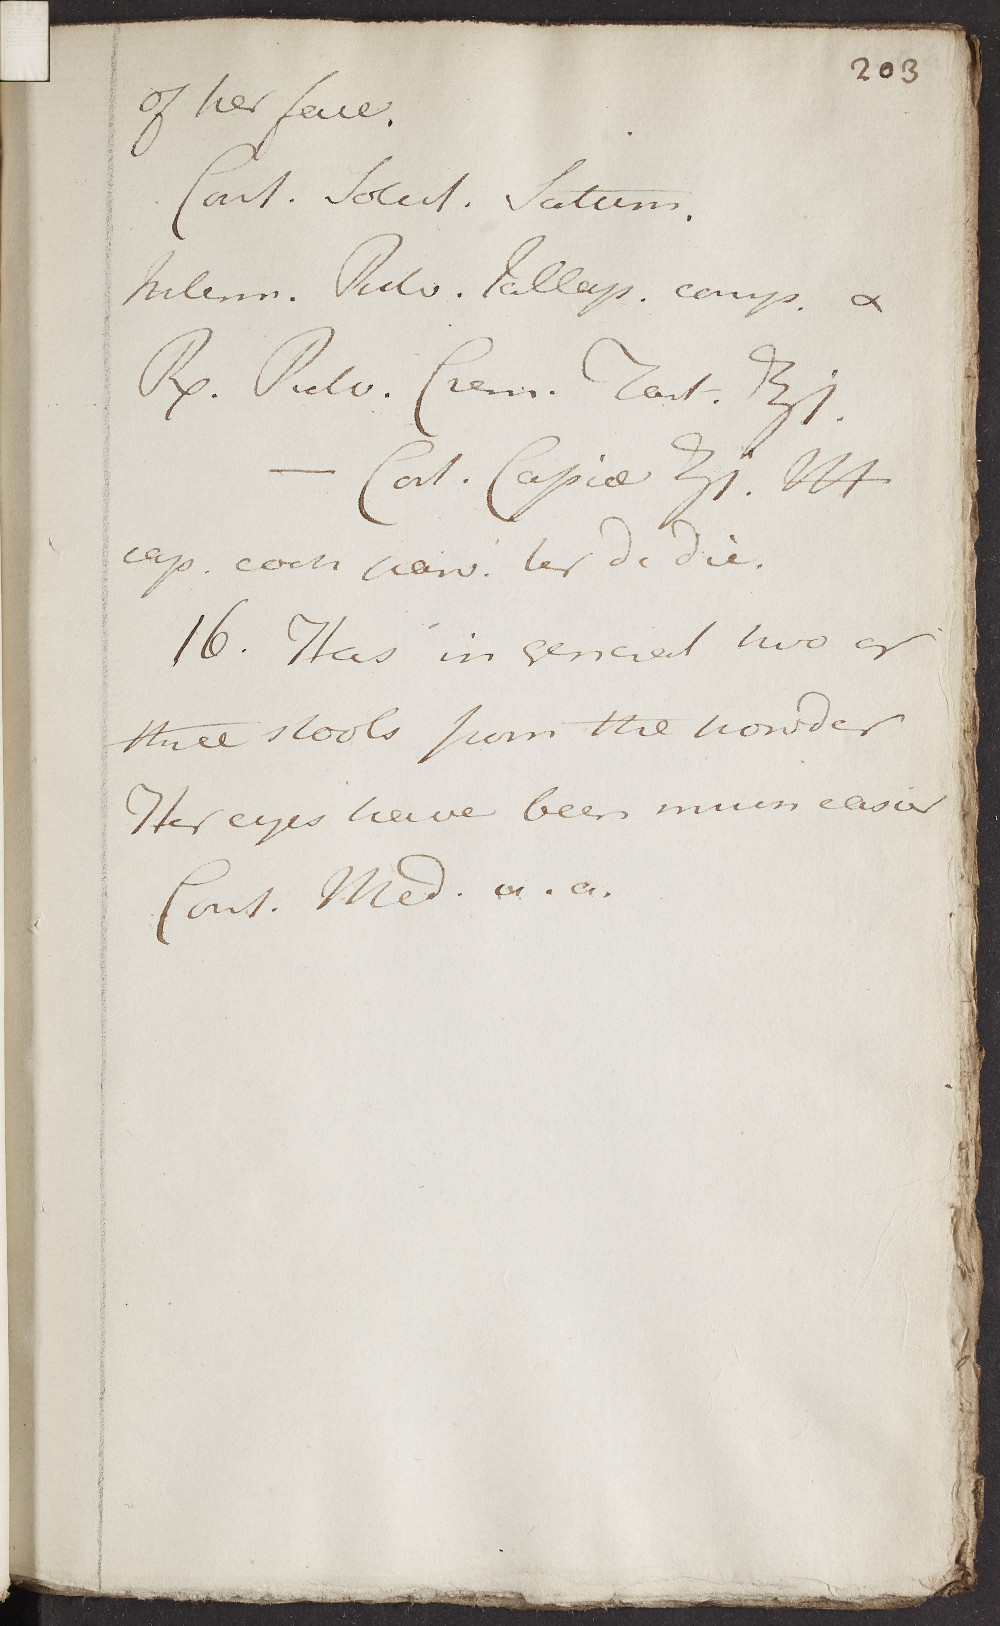 203
of her face.
Cont. Solut. Saturn.
Pulv. Jallap. comp. &
Rx. Pulv. Crem. Tart. ℥j.
— Cort. Cassiæ ʒj. M
cap. coch parv. ter de die.
16. Has in general two or
three stools from the powder
Her eyes have been much easier
Cont. Med. a. a.